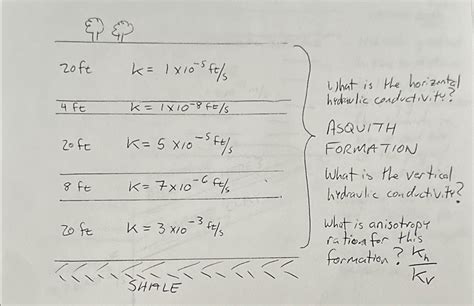 20ft K = 1x10⁻⁵ ft/s
4 ft K = 1x10⁻⁸ ft/s
20ft K = 5 x10⁻⁵ ft/s
8 ft K = 7x10⁻⁶ ft/s
20 ft K = 3 x10⁻³ ft/s
SHALE
What is the horizontal
hydraulic conductivity?
ASQUITH
FORMATION
What is the vertical
hydraulic conductivity?
What is anisotropy
ration for this
formation? Kh/Kv